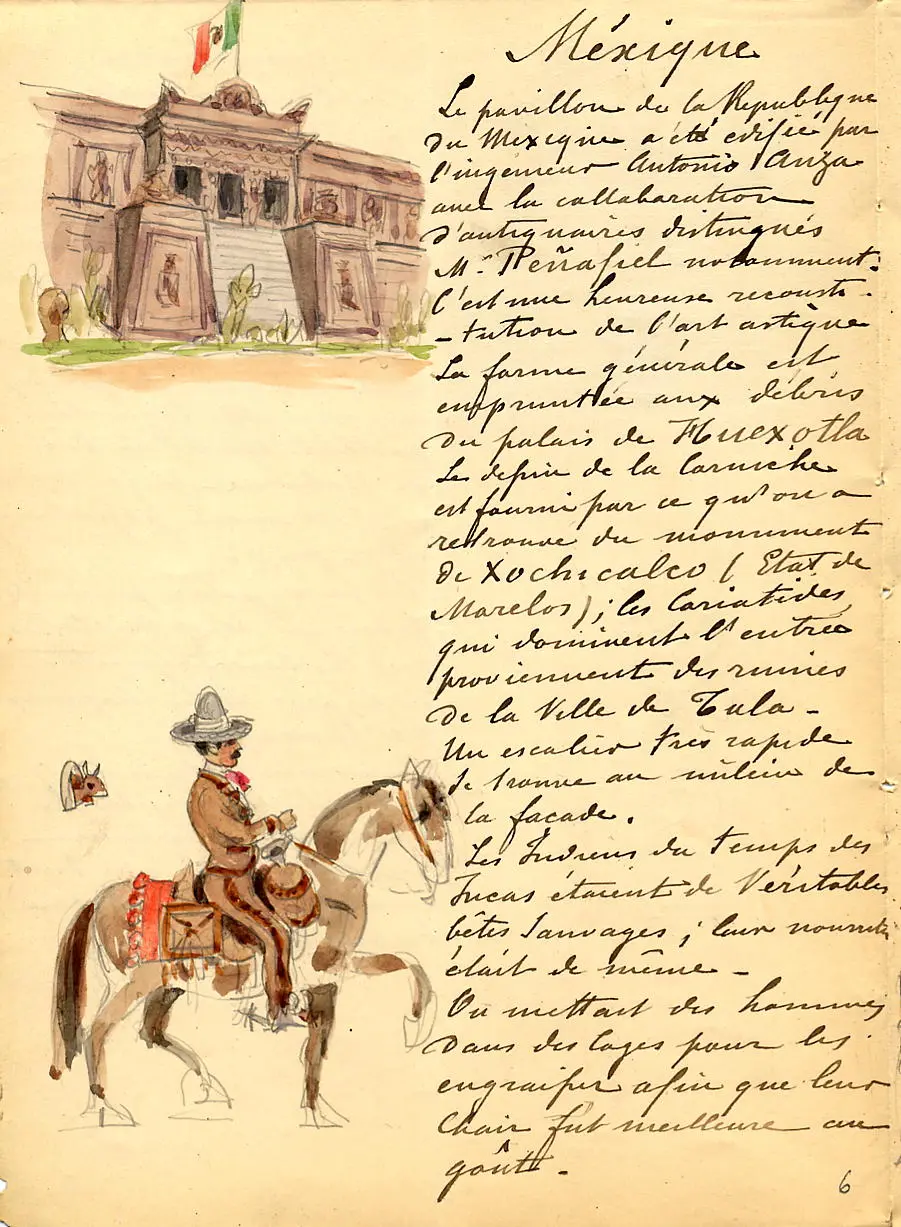 Méxique
Le pavillon de la Republique
du Mexique a été edifié par
l'ingenieur Antonio Anza
avec la collaboration
d'antiquaires distingués
Mr Peñafiel notamment.
C'est une heureuse reconsti-
-tution de l'art astèque
La forme générale est
empruntée aux débris
du palais de Huexotla
Le dessin de la Corniche
est fourni par ce qu'on a
retrouvé du monument
de Xochicalco (Etat de
Morelos); les Cariatides
qui dominent l'entrée
proviennent des ruines
de la Ville de Tula -
Un escalier très rapide
se trouve au milieu de
la façade.
Les Indiens du temps des
Incas étaient de Véritables
bêtes sauvages; leur nourriture
était de même -
On mettait des hommes
dans des Cages pour les
engraisser afin que leur
Chair fut meilleure au
goût -
6